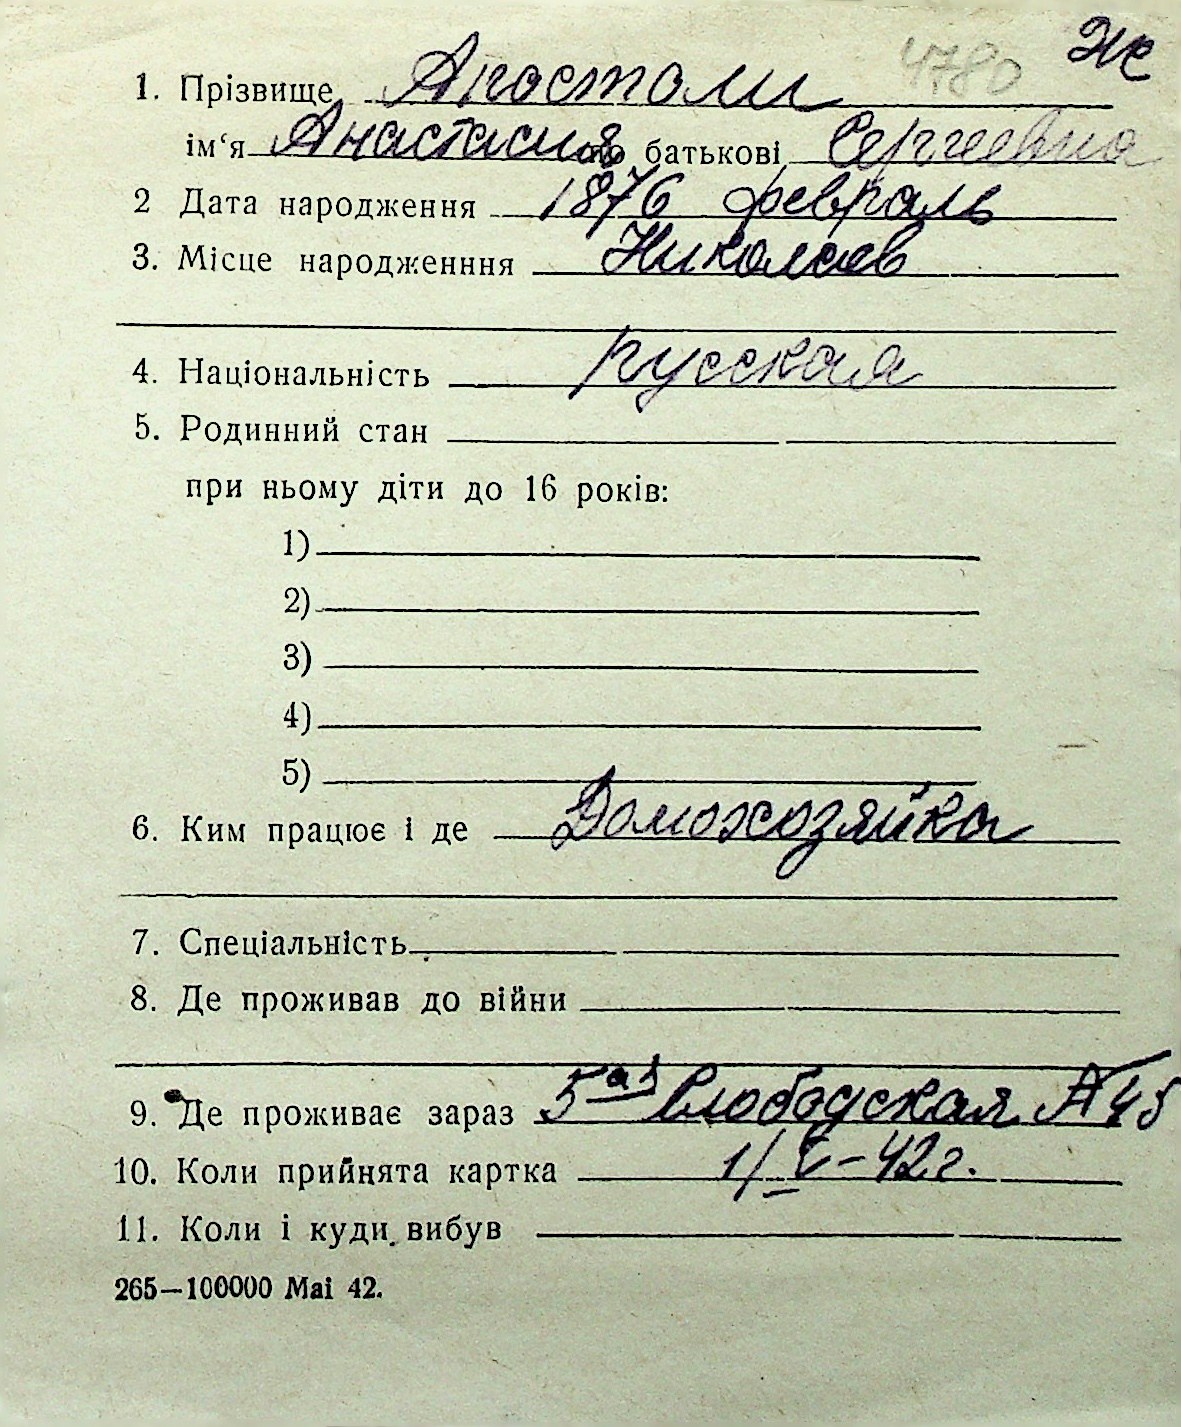 4780 Ж
1. Прізвище Апостоли
ім‘я Анастасия по батькові Сергеевна
2 Дата народження 1876 февраль
3. Місце народженння Николаев
4. Національність русская
5. Родинний стан
при ньому діти до 16 років:
1)
2)
3)
4)
5)
6. Ким працює і де Домохозяйка
7. Спеціальність
8. Де проживав до війни
9. Де проживає зараз 5ая Слободская 45
10. Коли прийнята картка 1/V–42 г.
11. Коли і куди вибув
265—100000 Mai 42.